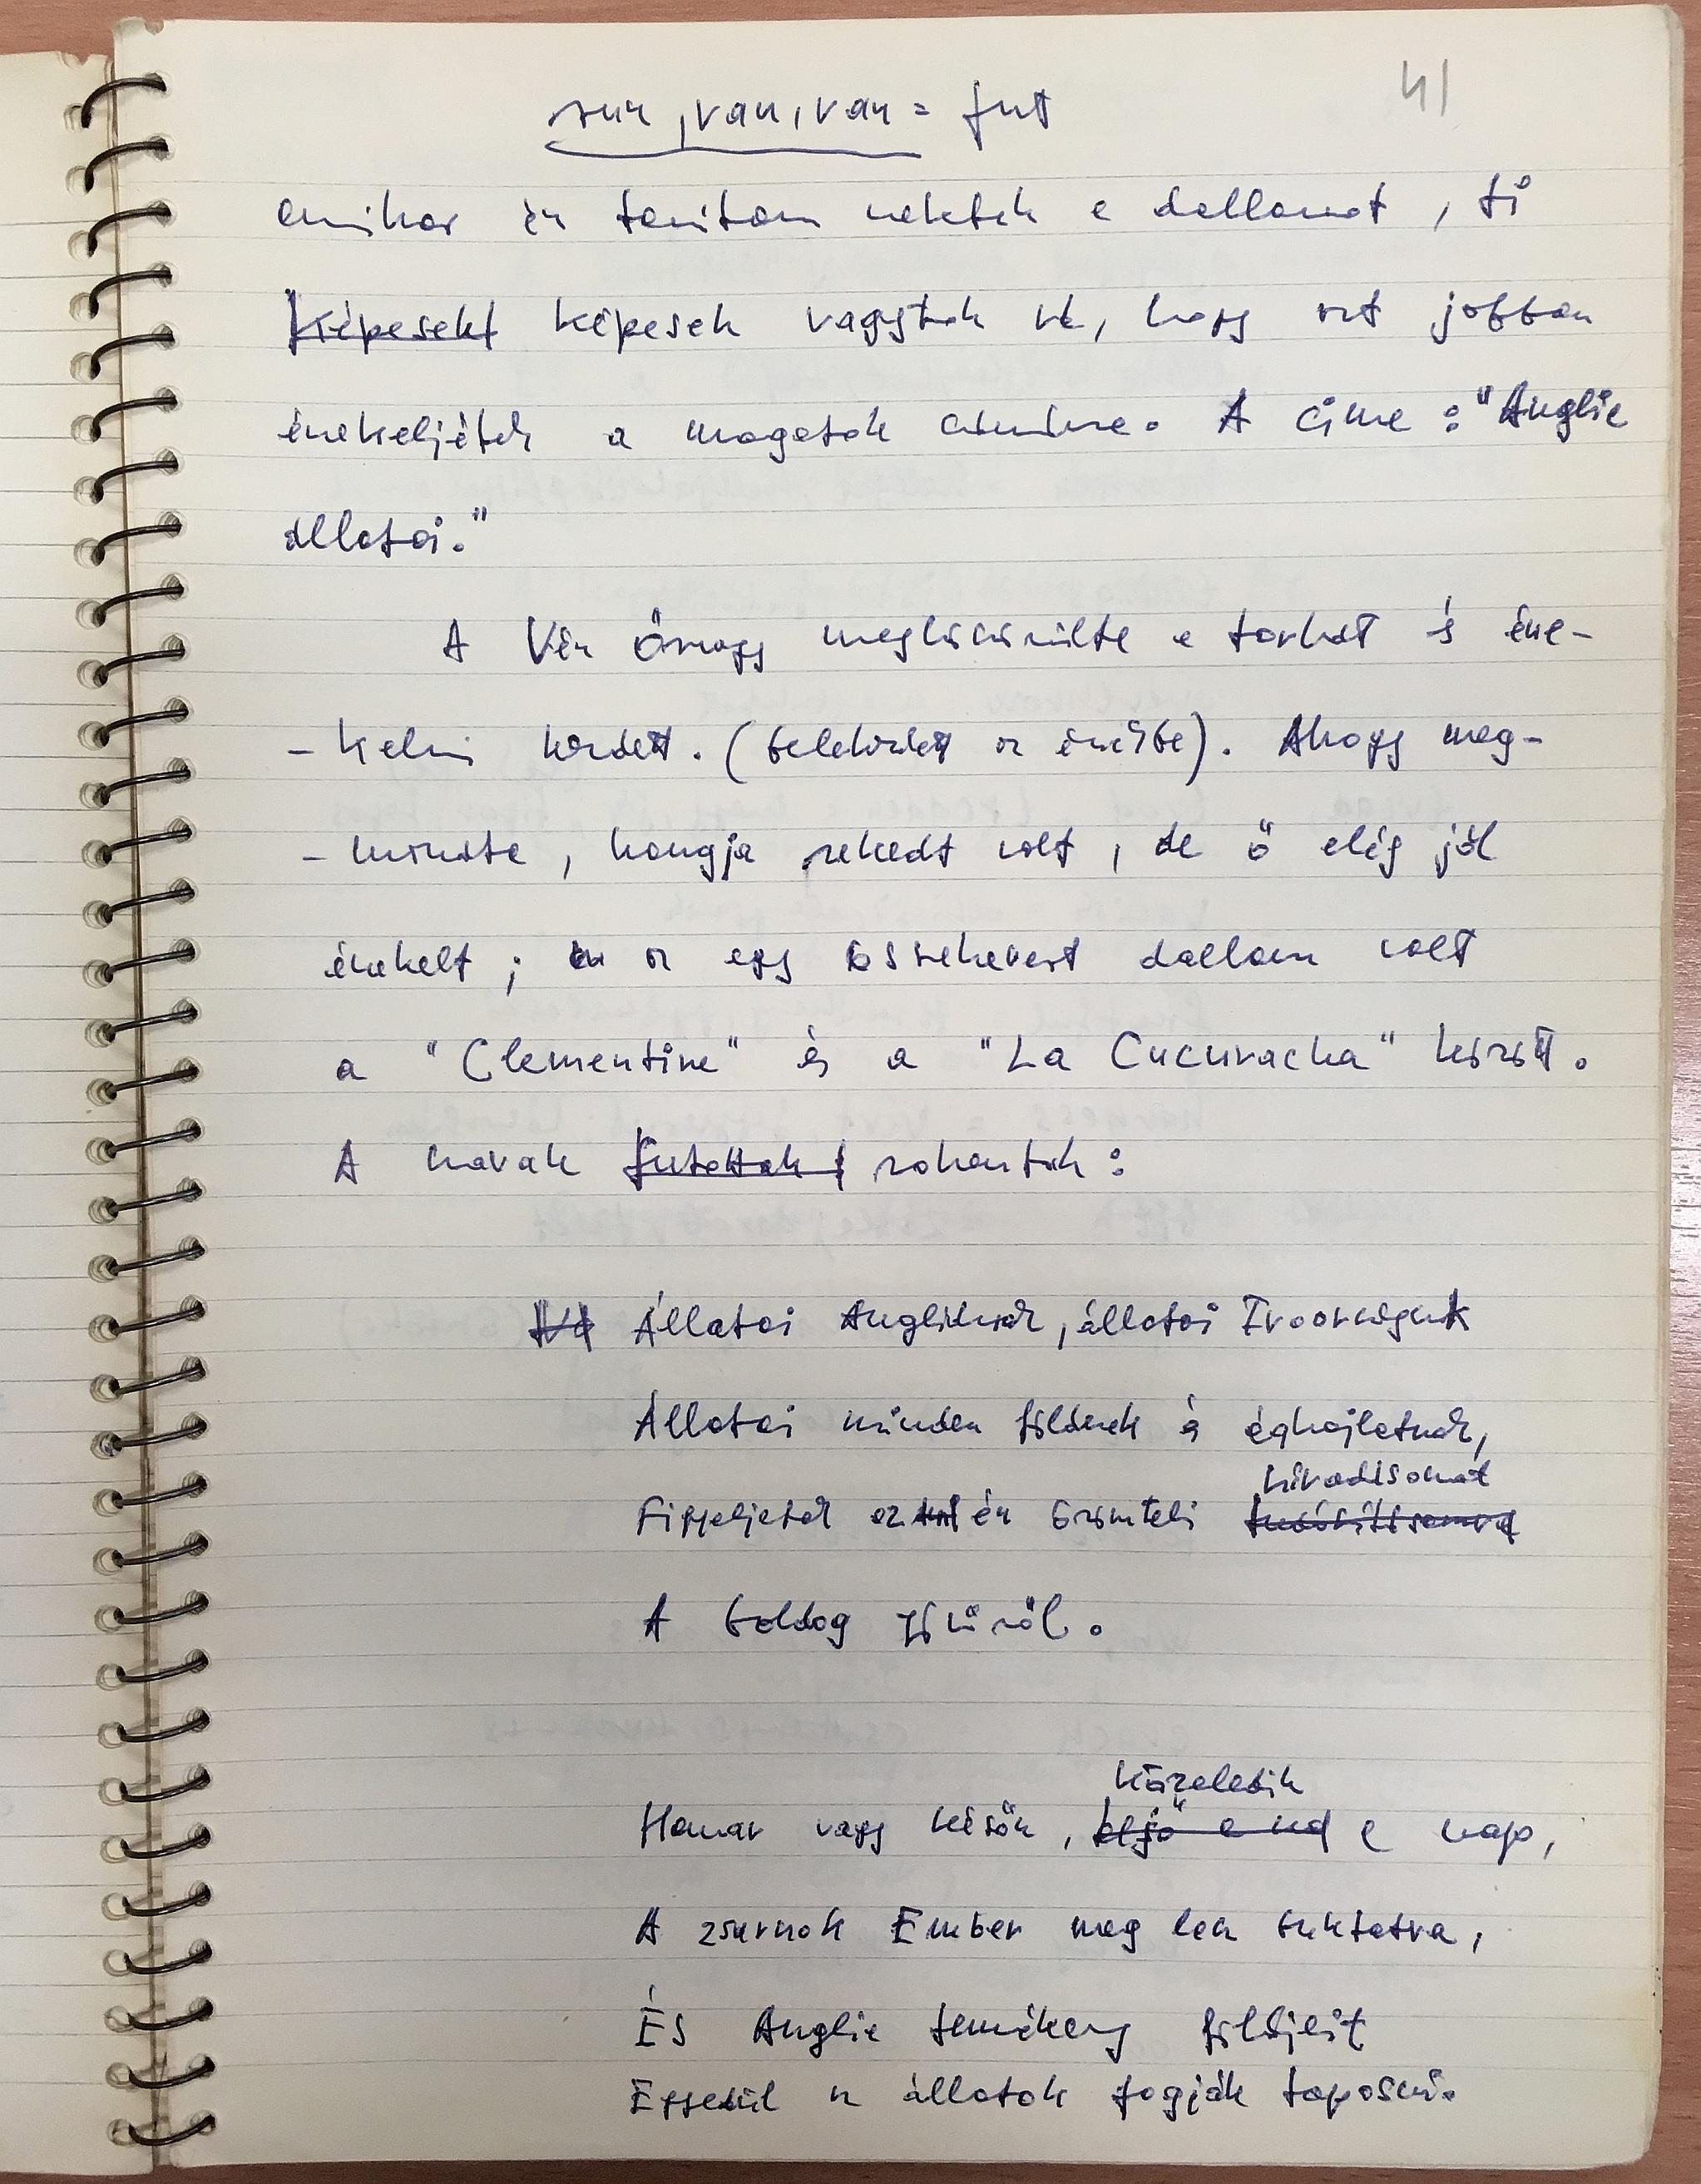 41
run, ran, ran = fut
amikor én tanítom nektek a dallamot, ti
képesek képesek vagytok rá, hogy ezt jobban
énekeljétek a magatok számára. A címe: "Anglia
állatai."
A Vén Őrnagy megköszörülte a torkát és éne-
-kelni kezdett. (belekezdett az énekbe). Ahogy meg-
-mondta, hangja rekedt volt, de ő elég jól
énekelt; az egy összekevert dallam volt
a "Clementine" és a "La Cucuracha" között.
A szavak futottak rohantak:
Állatai Angliának, állatai Írországnak
Állatai minden földnek és éghajlatnak,
híradásomat
Figyeljetek az én örömteli
A boldog jövőről.
közeledik
Hamar vagy későn, eljő a nap,
A zsarnok Ember meg lesz buktatva,
És Anglia termékeny földjeit
Egyedül az állatok fogják taposni.